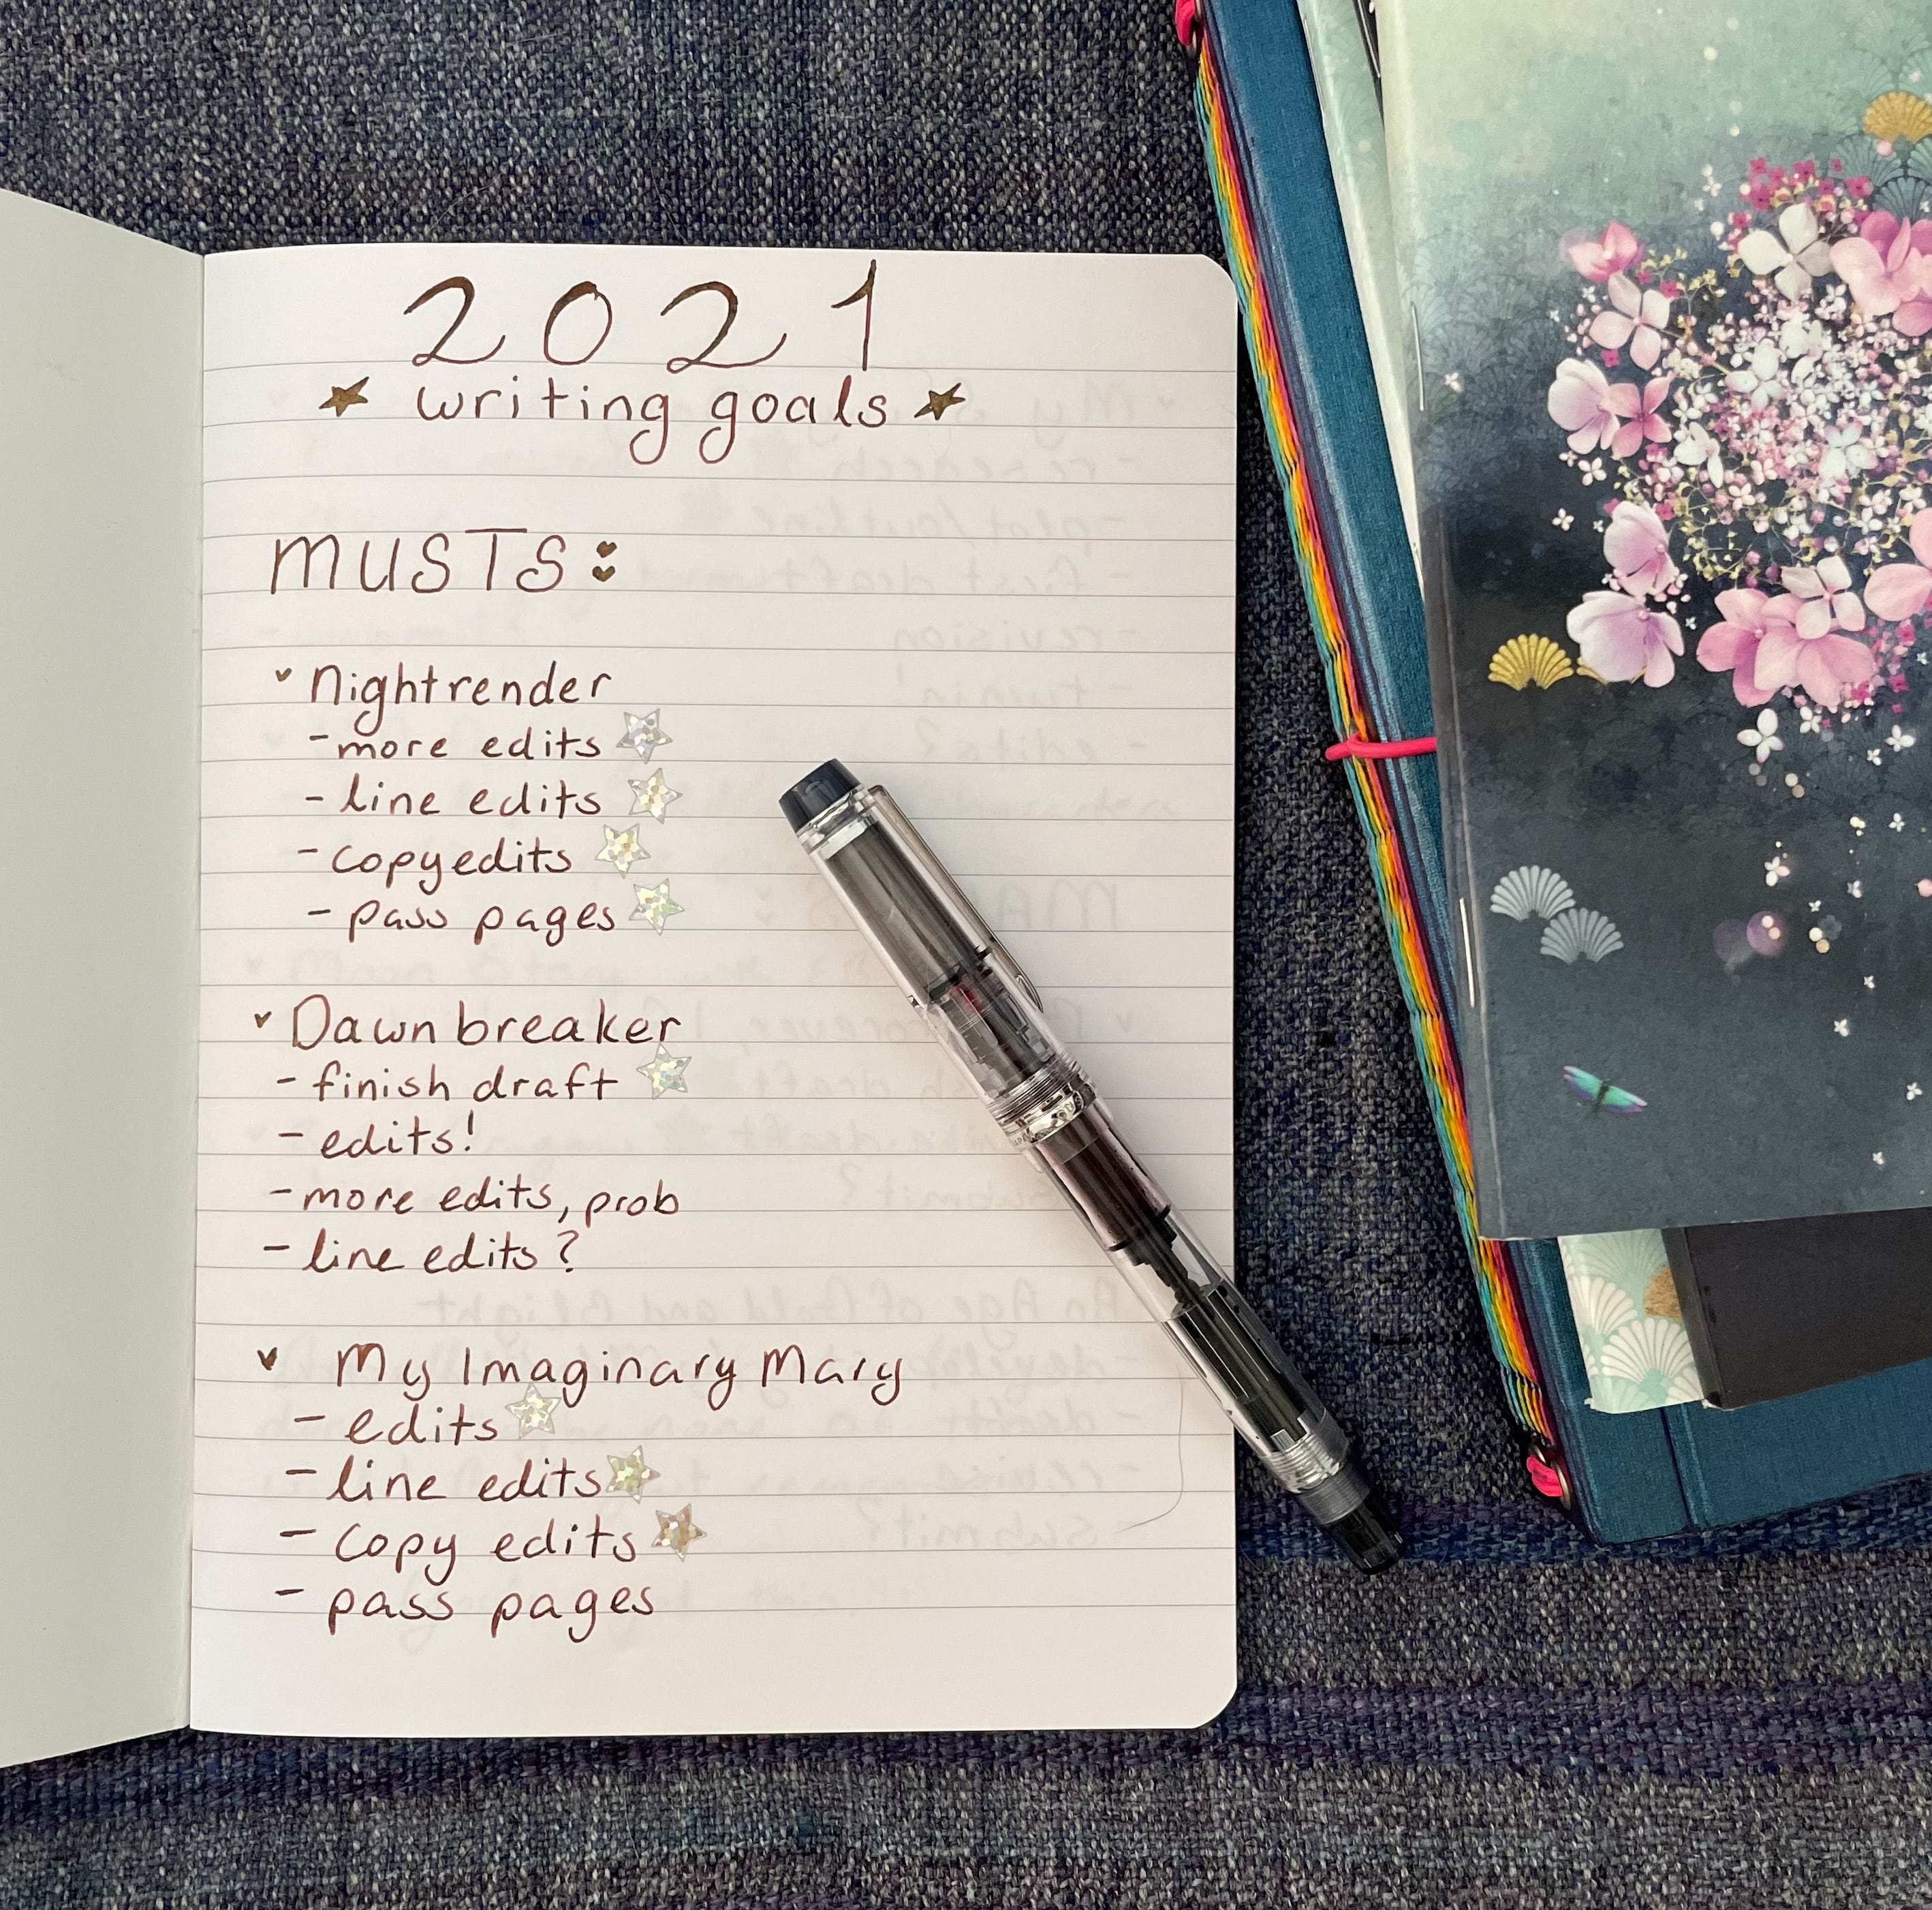 2021
writing goals
MUSTS:
Nightrender
- more edits
- line edits
- copyedits
- pass pages
Dawnbreaker
- finish draft
- edits!
- more edits, prob
- line edits?
My Imaginary Mary
- edits
- line edits
- copy edits
- pass pages